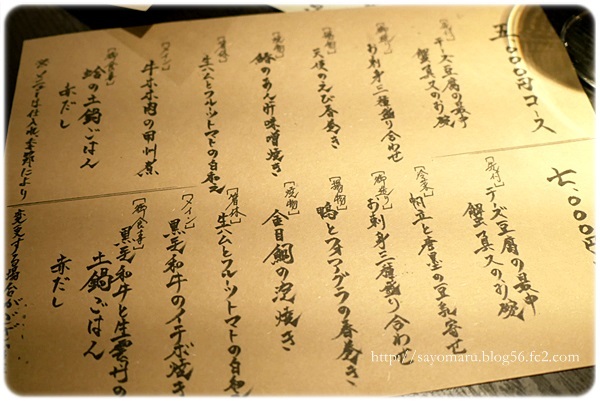 五、〇〇〇円コース
[先付]
チーズ豆腐の最中
蟹真丈のお椀
[御造り]
お刺身三種盛り合わせ
[揚物]
天使のえび春巻き
[焼物]
鰆のあん肝味噌焼き
[箸休]
生ハムとフルーツトマトの白和え
[メイン]
牛ホホ肉の甲州煮
[御食事]
蛤の土鍋ごはん
赤だし
※メニューは仕入れ、季節により
七、〇〇〇円
[先付]
チーズ豆腐の最中
蟹真丈のお椀
[冷菜]
帆立と唐墨の豆乳寄せ
[御造り]
お刺身三種盛り合わせ
[揚物]
鴨とフォアグラの春巻き
[焼物]
金目鯛の泡焼き
[箸休]
生ハムとフルーツトマトの白和え
[メイン]
黒毛和牛のイチボ焼き
[御食事]
黒毛和牛と生雲丹の
土鍋ごはん
赤だし
変更する場合が
http://sayomaru.blog56.fc2.com